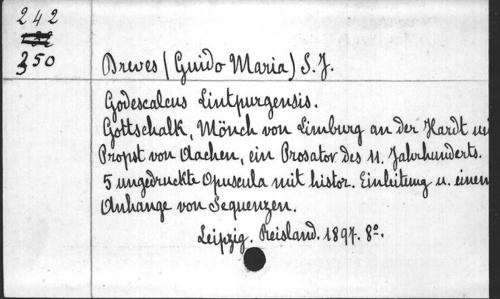 242
350
Dreves (Guido Maria) S. J.
Godescalcus Lintpurgensis.
Gottschalk, Mönch von Limburg an der Hardt
Propst von Aachen, ein Prosator des 11. Jahrhunderts.
5 ungedruckte Opuscula mit histor. Einleitung u. einem
Anhange von Sequenzen.
Leipzig. Reisland. 1897. 8º.